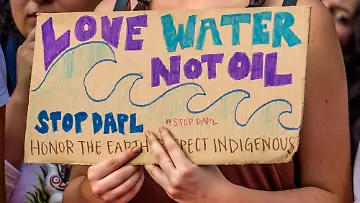 LOVE WATER
NOT OIL
STOP DAPL
#STOPDAPL
HONOR THE EARTH RESPECT INDIGENOUS